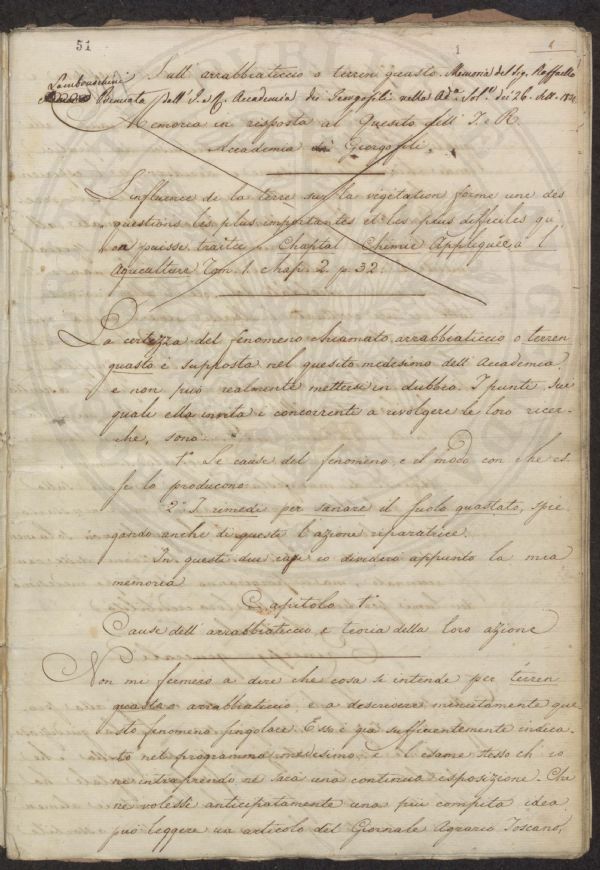 51 1
Sull' arrabbiaticcio o terreni guasto. Memoria del Sig. Raffaello
Lambruschini
Premiata dall' I. e R. Accademia dei Georgofili nella Ad.ª Sol.e dei 26. Sett.
Memoria in risposta al Quesito dell' I. e R.
Accademia dei Giorgofili.
L'influence de la terre sur la vegetation forme une des
questions les plus importantes et les plus difficiles qu'
on puisse traiter. Chaptal Chimie Appliquée à l'
Agriculture Tom. 1. chap. 2. p. 32
La certezza del fenomeno chiamato arrabbiaticcio o terren
guasto è supposta nel quesito medesimo dell' Accademia,
e non può realmente mettersi in dubbio. I punti sui
quali ella invita i concorrenti a rivolgere le loro ricer-
che, sono:
1º Le cause del fenomeno, e il modo con che es-
se lo producono:
2º I rimedi per sanare il suolo guastato, spie-
gando anche di questi l'azione riparatrice.
In questi due capi io dividerò appunto la mia
memoria
Capitolo 1º
Cause dell' arrabbiaticcio, e teoria della loro azione
Non mi fermerò a dire che cosa si intende per terren
guasto o arrabbiaticcio, e a descrivere minutamente que-
sto fenomeno singolare. Esso è già sufficientemente indica-
to nel programma medesimo; e l'esame stesso ch' io
ne intraprendo ne sarà una continua esposizione. Chi
ne volesse anticipatamente una più compita idea
può leggere un articolo del Giornale Agrario Toscano,